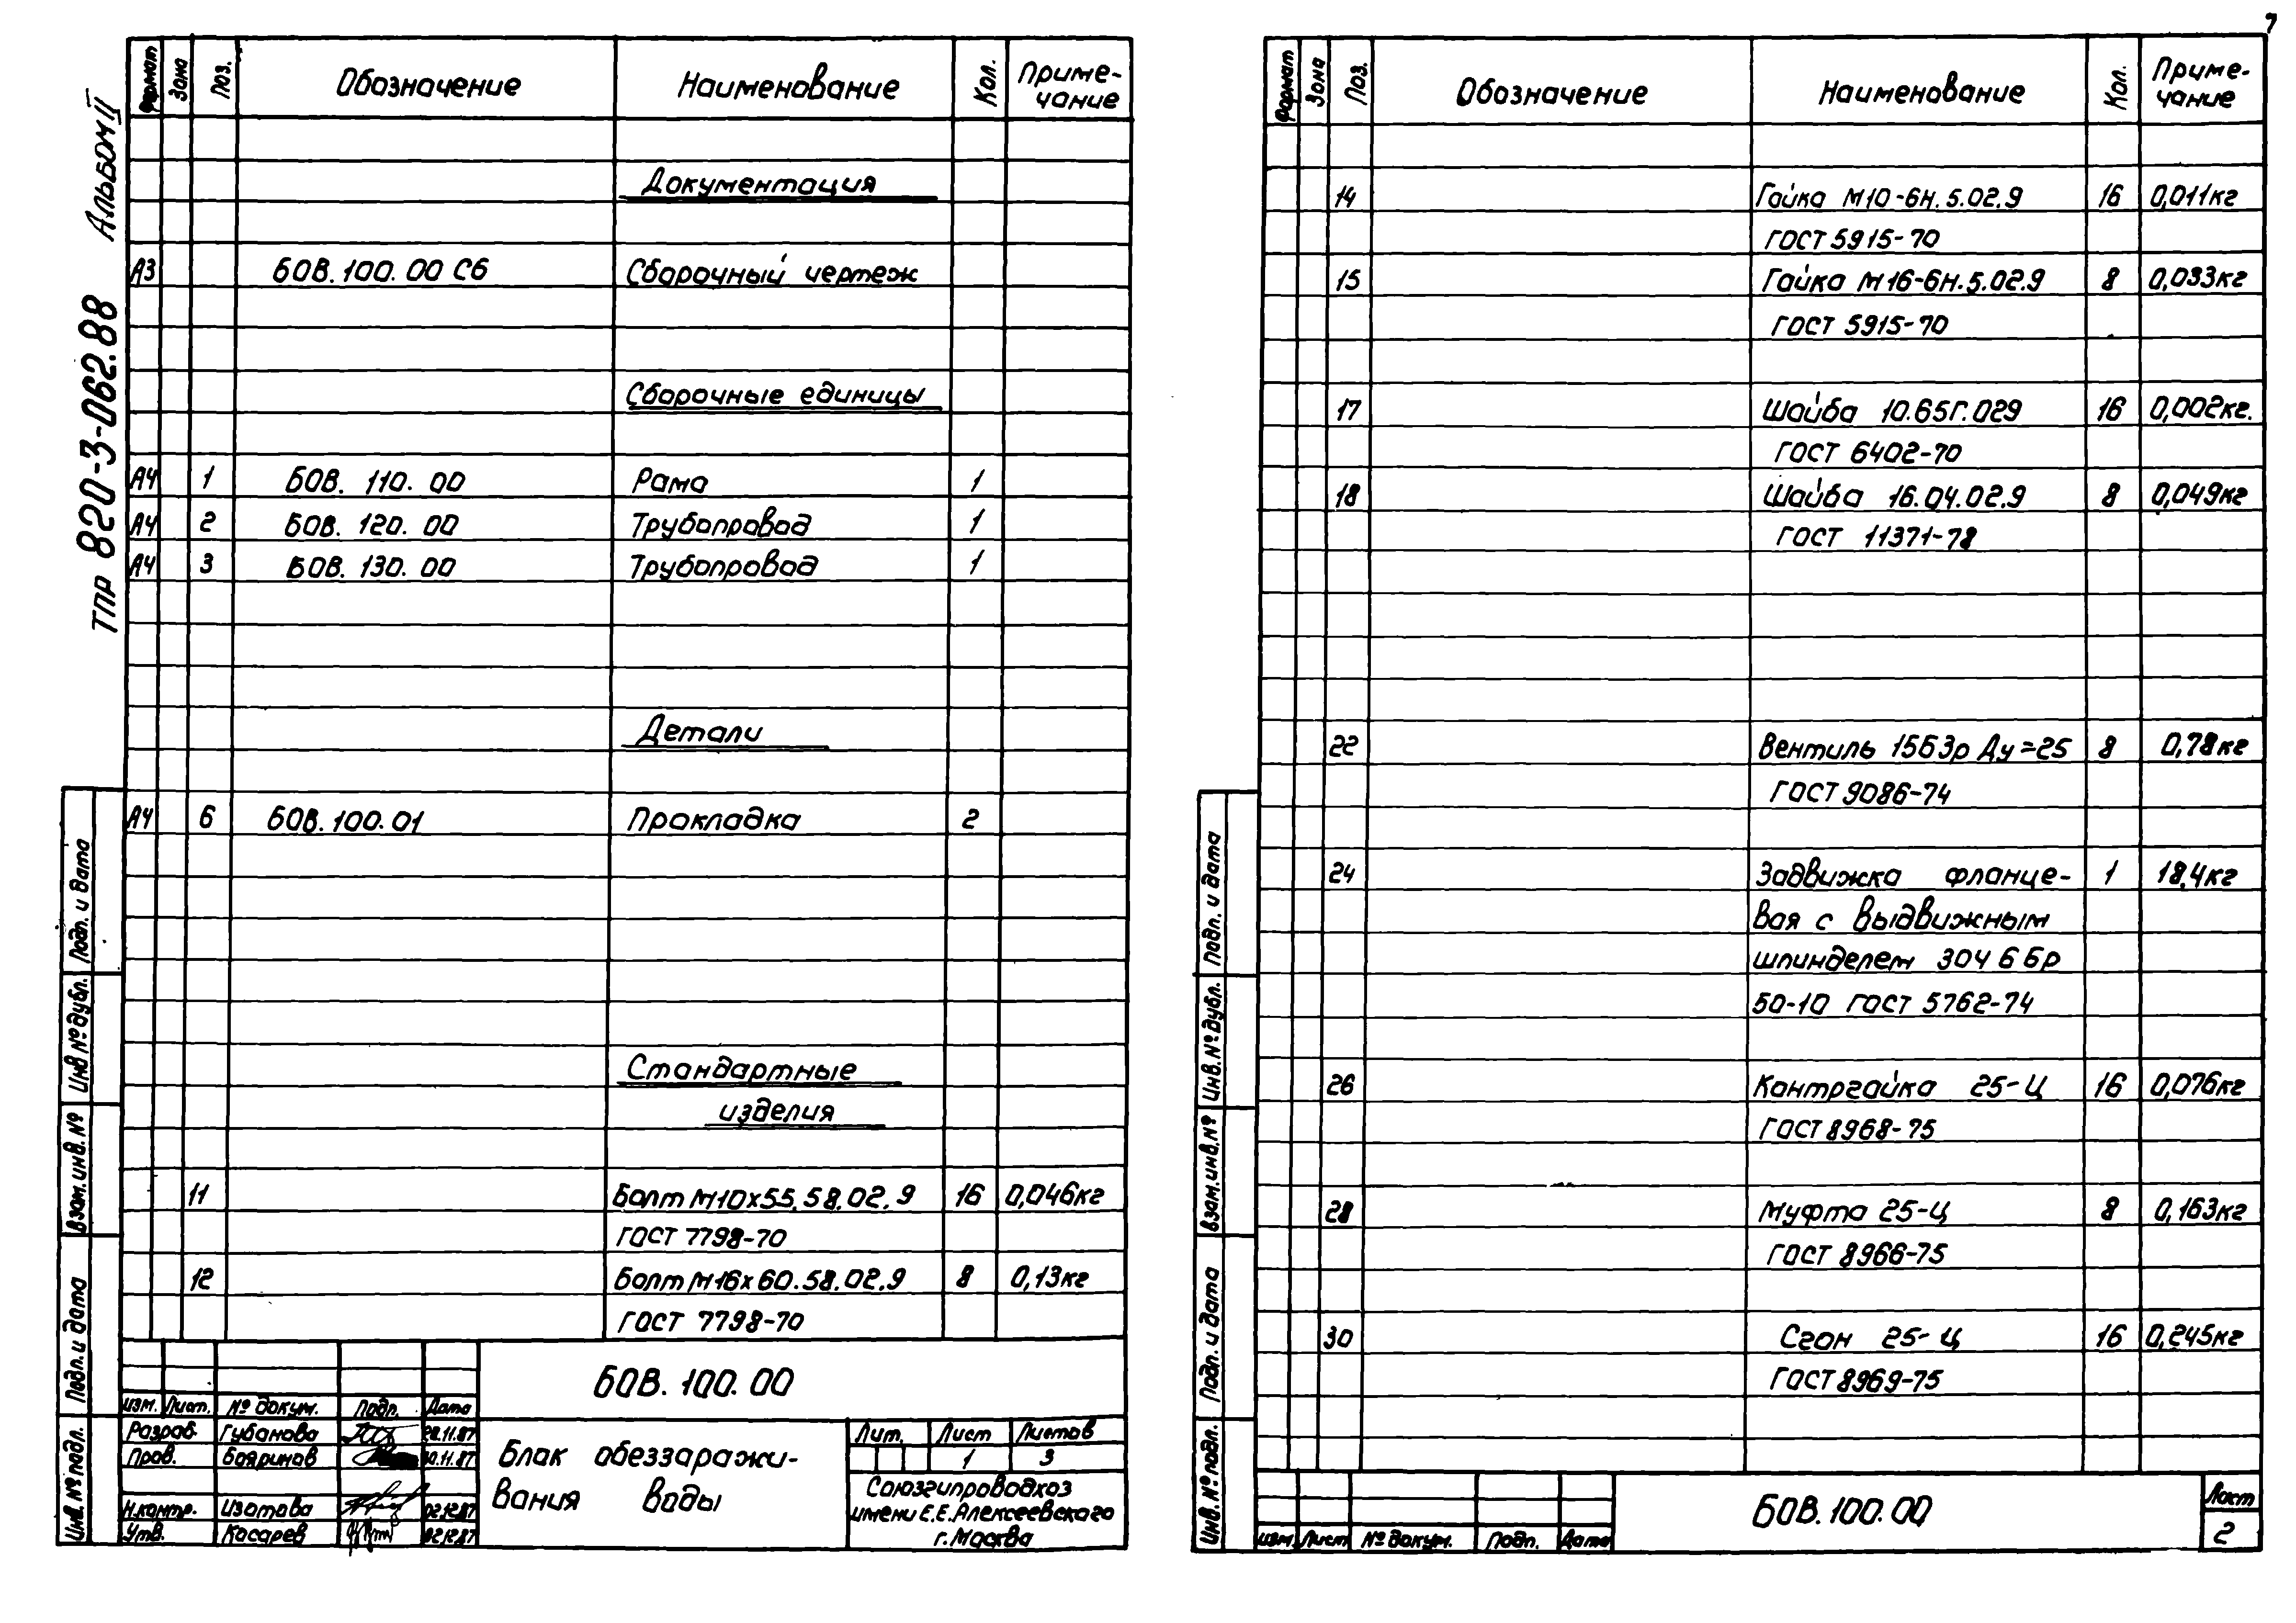 7
Альбом II
ТПР 820-3-062.88
Формат Зона Поз. Обозначение Наименование Кол. Приме-
чание
Документация
А3 БОВ.100.00 СБ Сборочный чертеж
Сборочные единицы
А4 1 БОВ. 110. 00 Рама 1
А4 2 БОВ. 120. 00 Трубопровод 1
А4 3 БОВ. 130. 00 Трубопровод 1
Детали
А4 6 БОВ.100.01 Прокладка 2
Стандартные
изделия
11 Болт М10х55.58.02.9 16 0,046кг
ГОСТ 7798-70
12 Болт М16х60.58.02.9 8 0,13кг
ГОСТ 7798-70
Подп. и дата
Инв № дубл.
Взам. инв. №
Подп. и дата
Инв. № подл.
БОВ. 100. 00
Изм. Лист. № докум. Подп. Дата
Разраб. Губанова 20.11.87
Пров. Бояринов 30.11.87
Н.контр. Изотова 02.12.87
Утв. Косарев 02.12.87
Блок обеззаражи-
вания воды
Лит. Лист Листов
1 3
Союзгипроводхоз
имени Е.Е.Алексеевского
г. Москва
Формат Зона Поз. Обозначение Наименование Кол. Приме-
чание
14 Гайка М10-6Н.5.02.9 16 0,011кг
ГОСТ 5915-70
15 Гайка М16-6Н.5.02.9 8 0,033кг
ГОСТ 5915-70
17 Шайба 10.65Г.029 16 0,002кг.
ГОСТ 6402-70
18 Шайба 16.04.02.9 8 0,049кг
ГОСТ 11371-78
22 Вентиль 15Б3р Ду=25 8 0,78кг
ГОСТ 9086-74
24 Задвижка фланце- 1 18,4кг
вая с выдвижным
шпинделем 30Ч 6 бр
50-10 ГОСТ 5762-74
26 Контргайка 25-Ц 16 0,076кг
ГОСТ 8968-75
28 Муфта 25-Ц 8 0,163кг
ГОСТ 8966-75
30 Сгон 25-Ц 16 0,245кг
ГОСТ 8969-75
Подп. и дата
Инв. № дубл.
Взам. инв. №
Подп. и дата
Инв. № подл.
Изм. Лист № докум. Подп. Дата
БОВ.100.00
Лист
2